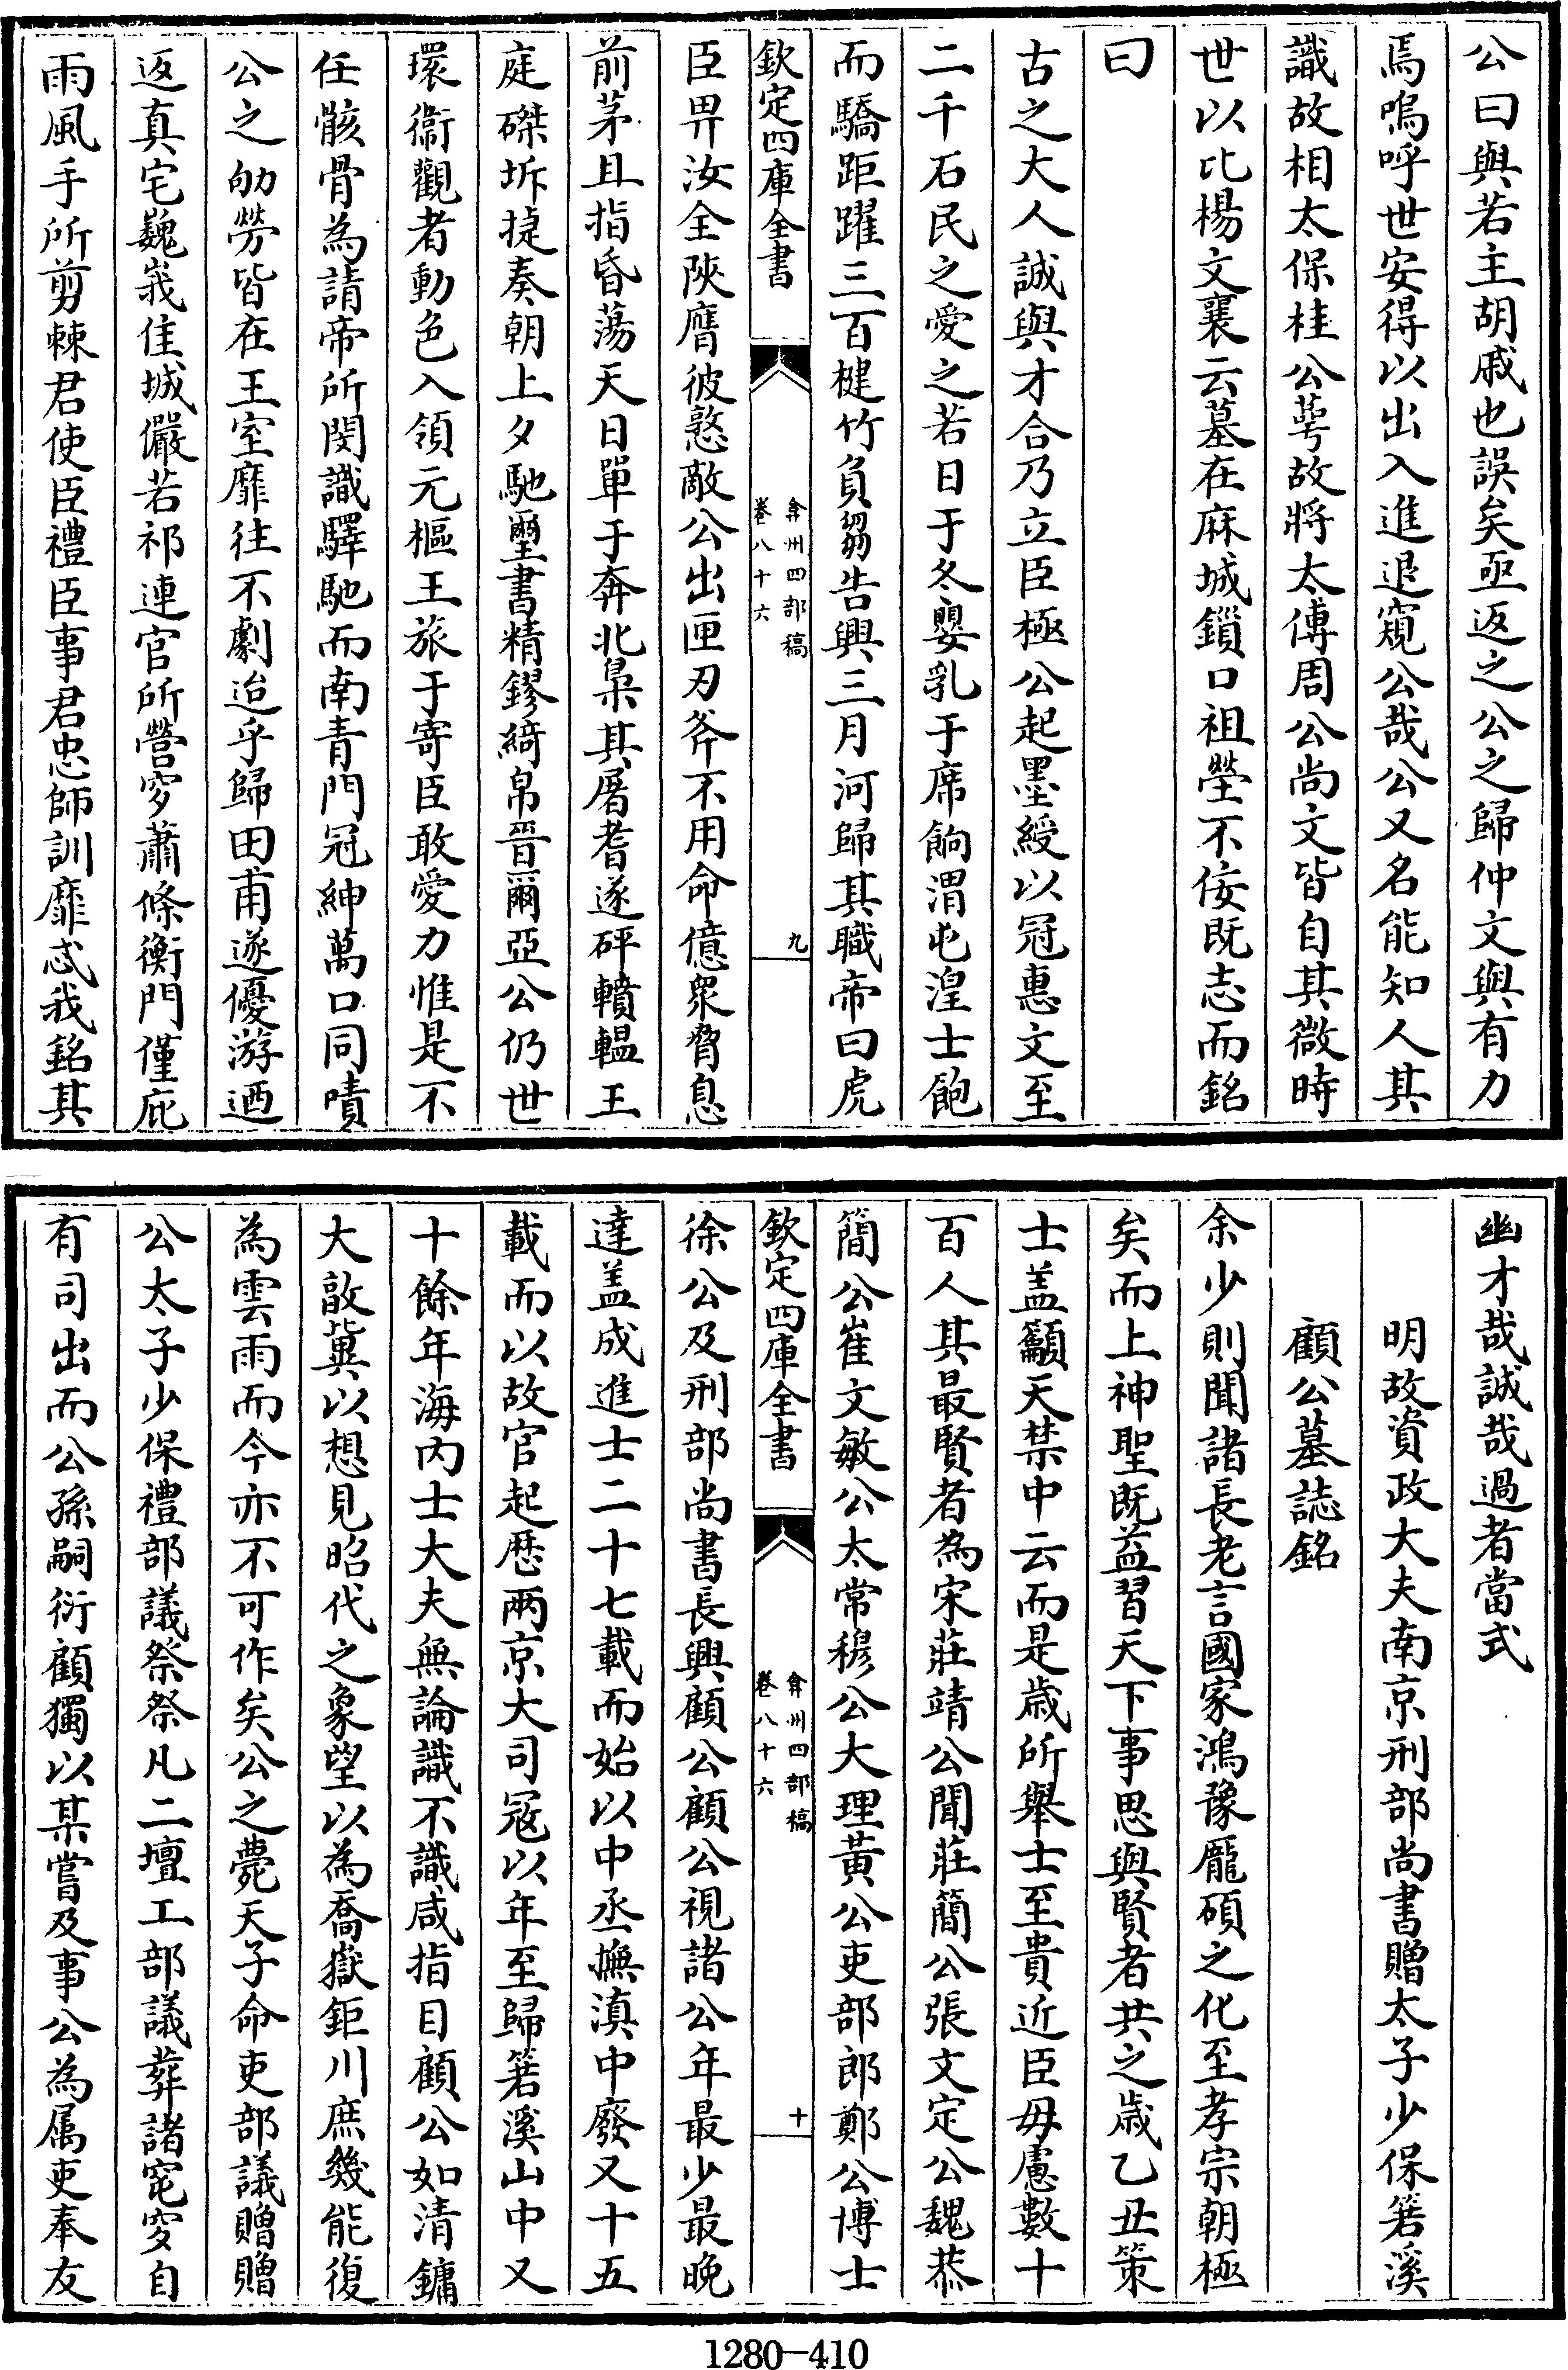 公曰與若主胡戚也誤矣亟返之公之歸仲文與有力
焉嗚呼世安得以出入進退窺公哉公又名能知人其
識故相太保桂公蕚故將太傅周公尚文皆自其微時
世以比楊文襄云墓在麻城鎖口祖塋不佞既志而銘
曰
古之大人誠與才合乃立臣極公起墨綬以冠惠文至
二千石民之愛之若日于冬嬰乳于席餉渭屯湟士飽
而驕距躍三百楗竹負芻告興三月河歸其職帝曰虎
欽定四庫全書
弇州四部稿
卷八十六
九
臣畀汝全陝膺彼憝敵公出匣刃斧不用命億眾脅息
前茅且指昏蕩天日單于奔北梟其屠耆遂砰轒轀王
庭磔坼捷奏朝上夕馳璽書精鏐綺帛晉爾亞公仍世
環衞觀者動色入領元樞王旅于寄臣敢愛力惟是不
任骸骨為請帝所閔識驛馳而南青門冠紳萬口同嘖
公之劬勞皆在王室靡往不劇迨乎歸田甫遂優游迺
返真宅巍峩佳城儼若祁連官所營穸蕭條衡門僅庇
雨風手所剪棘君使臣禮臣事君忠師訓靡忒我銘其
幽才哉誠哉過者當式
明故資政大夫南京刑部尚書贈太子少保箬溪
顧公墓誌銘
余少則聞諸長老言國家鴻豫龐碩之化至孝宗朝極
矣而上神聖既益習天下事思與賢者共之歳乙丑策
士盖籲天禁中云而是歳所舉士至貴近臣毋慮數十
百人其最賢者為宋莊靖公聞莊簡公張文定公魏恭
簡公崔文敏公太常穆公大理黃公吏部郎鄭公博士
欽定四庫全書
弇州四部稿
卷八十六
十
徐公及刑部尚書長興顧公顧公視諸公年最少最晚
達盖成進士二十七載而始以中丞撫滇中廢又十五
載而以故官起歴兩京大司冦以年至歸箬溪山中又
十餘年海内士大夫無論識不識咸指目顧公如清鏞
大敦冀以想見昭代之象望以為喬嶽鉅川庶幾能復
為雲雨而今亦不可作矣公之薨天子命吏部議贈贈
公太子少保禮部議祭祭凡二壇工部議葬諸窀穸自
有司出而公孫嗣衍顧獨以某嘗及事公為属吏奉友
1280-410